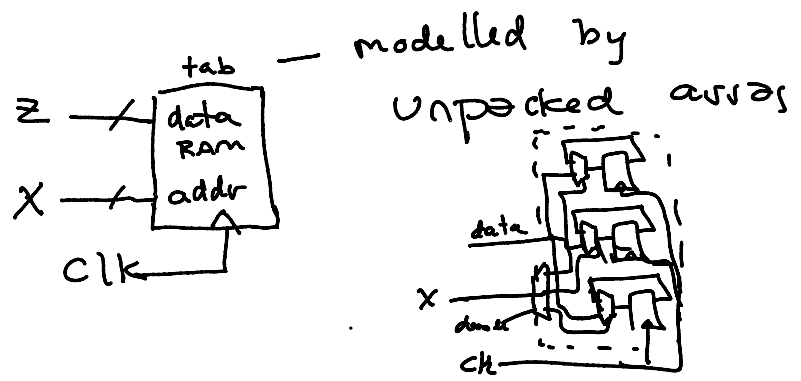 tab — modelled by
unpacked array
Z data
RAM
X addr
Clk
data
X
demux
Clk